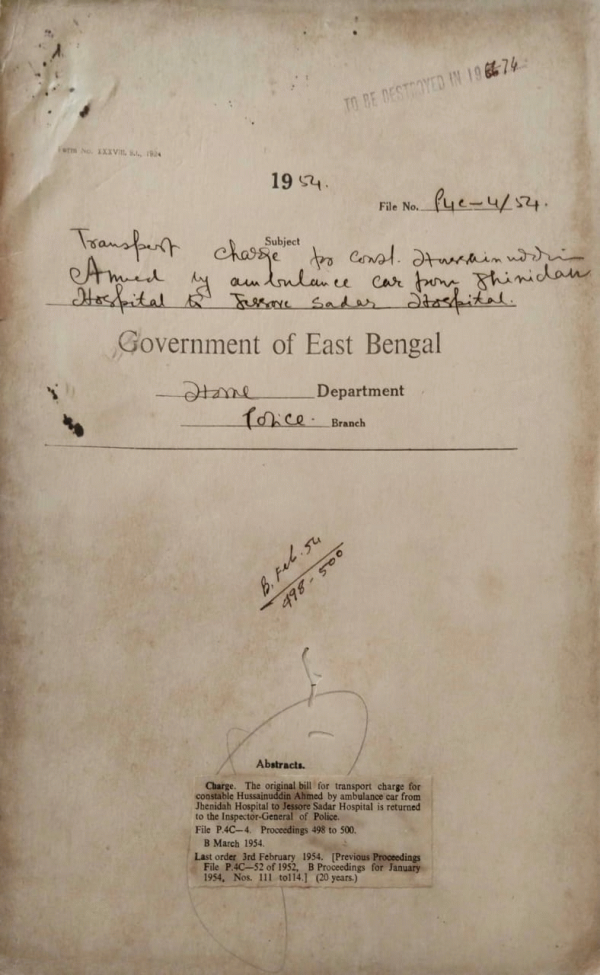 TO BE DESTROYED IN 1974
Form No. XXXVIII, P.I., 1954
1954.
File No. P4C-4/54.
Subject
Transport charge for Const. Hussainuddin
Ahmed by ambulance car from Jhinidah
Hospital to Jessore Sadar Hospital.
Government of East Bengal
Home Department
Police. Branch
B. Feb. 54
498-500
Abstracts.
Charge. The original bill for transport charge for
constable Hussainuddin Ahmed by ambulance car from
Jhenidah Hospital to Jessore Sadar Hospital is returned
to the Inspector-General of Police.
File P.4C—4. Proceedings 498 to 500.
B March 1954.
Last order 3rd February 1954. [Previous Proceedings
File P.4C—52 of 1952, B Proceedings for January
1954, Nos. 111 to114.] (20 years.)